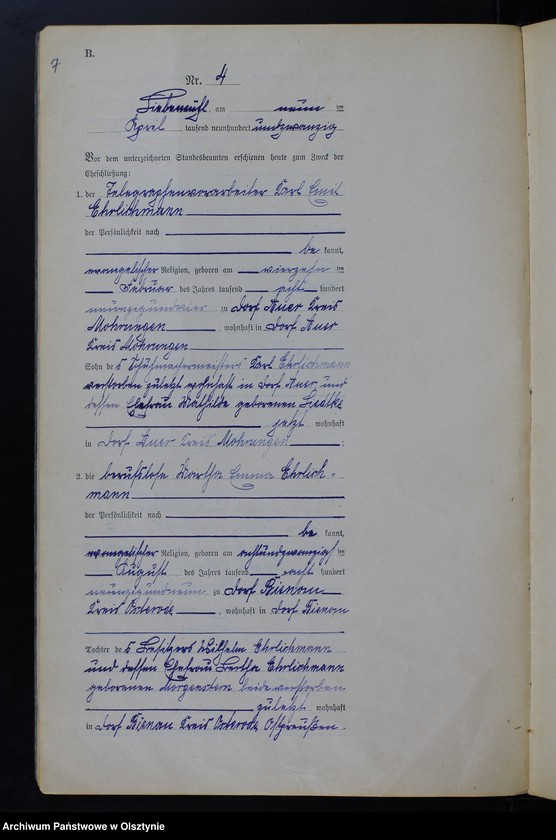 7
B.
Nr. 4
Liebemühl am neun ten
April tausend neunhundert undzwanzig
Vor dem unterzeichneten Standesbeamten erschienen heute zum Zweck der
Eheschließung:
1. der Telegraphenvorarbeiter Karl Emil
Ehrlichmann
der Persönlichkeit nach
be kannt,
evangelischer Religion, geboren am vierzehn ten
Februar des Jahres tausend acht hundert
neunzigundvier zu Dorf Auer Kreis
Mohrungen wohnhaft in Dorf Auer
Kreis Mohrungen
Sohn des Schuhmachermeisters Karl Ehrlichmann
verstorben zuletzt wohnhaft in Dorf Auer und
dessen Ehefrau Mathilde geborenen
jetzt wohnhaft
in Dorf Auer Kreis Mohrungen :
2. die berufslose Martha Emma Ehrlich-
mann
der Persönlichkeit nach
be kannt,
evangelischer Religion, geboren am achtundzwanzigsten
August des Jahres tausend acht hundert
neunzigundneun zu Dorf Bienau
Kreis Osterode , wohnhaft in Dorf Bienau
Tochter des Besitzers Wilhelm Ehrlichmann
und dessen Ehefrau Bertha Ehrlichmann
geborenen Morgenstern beide verstorben
zuletzt wohnhaft
in Dorf Bienau Kreis Osterode Ostpreußen.
Archiwum Państwowe w Olsztynie